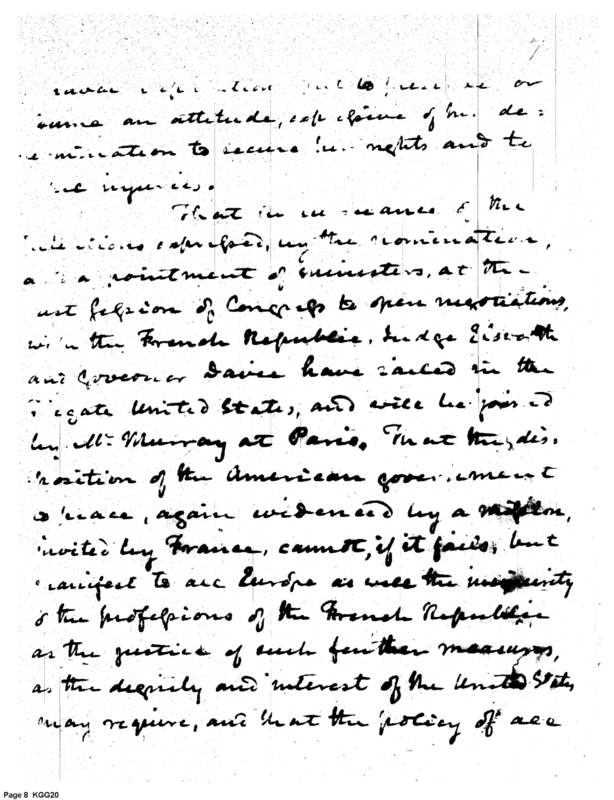 7
or
an attitude, expressive of
to secure her rights and
injuries.
That in of the
expressed, by the nomination,
appointment of ministers, at the
last session of Congress to open negotiations,
with the French Republic, Judge Elsworth
and Governor Davie have sailed in the
Frigate United States, and will be joined
by Mr Murray at Paris. That the dis-
position of the American government
to peace, again evidenced by a mission,
invited by France, cannot, if it fails, but
manifest to all Europe as well the insincerity
of the professions of the French Republic
as the justice of such further measures,
as the dignity and interest of the United States
may require, and that the policy of all
Page 8 KGG20